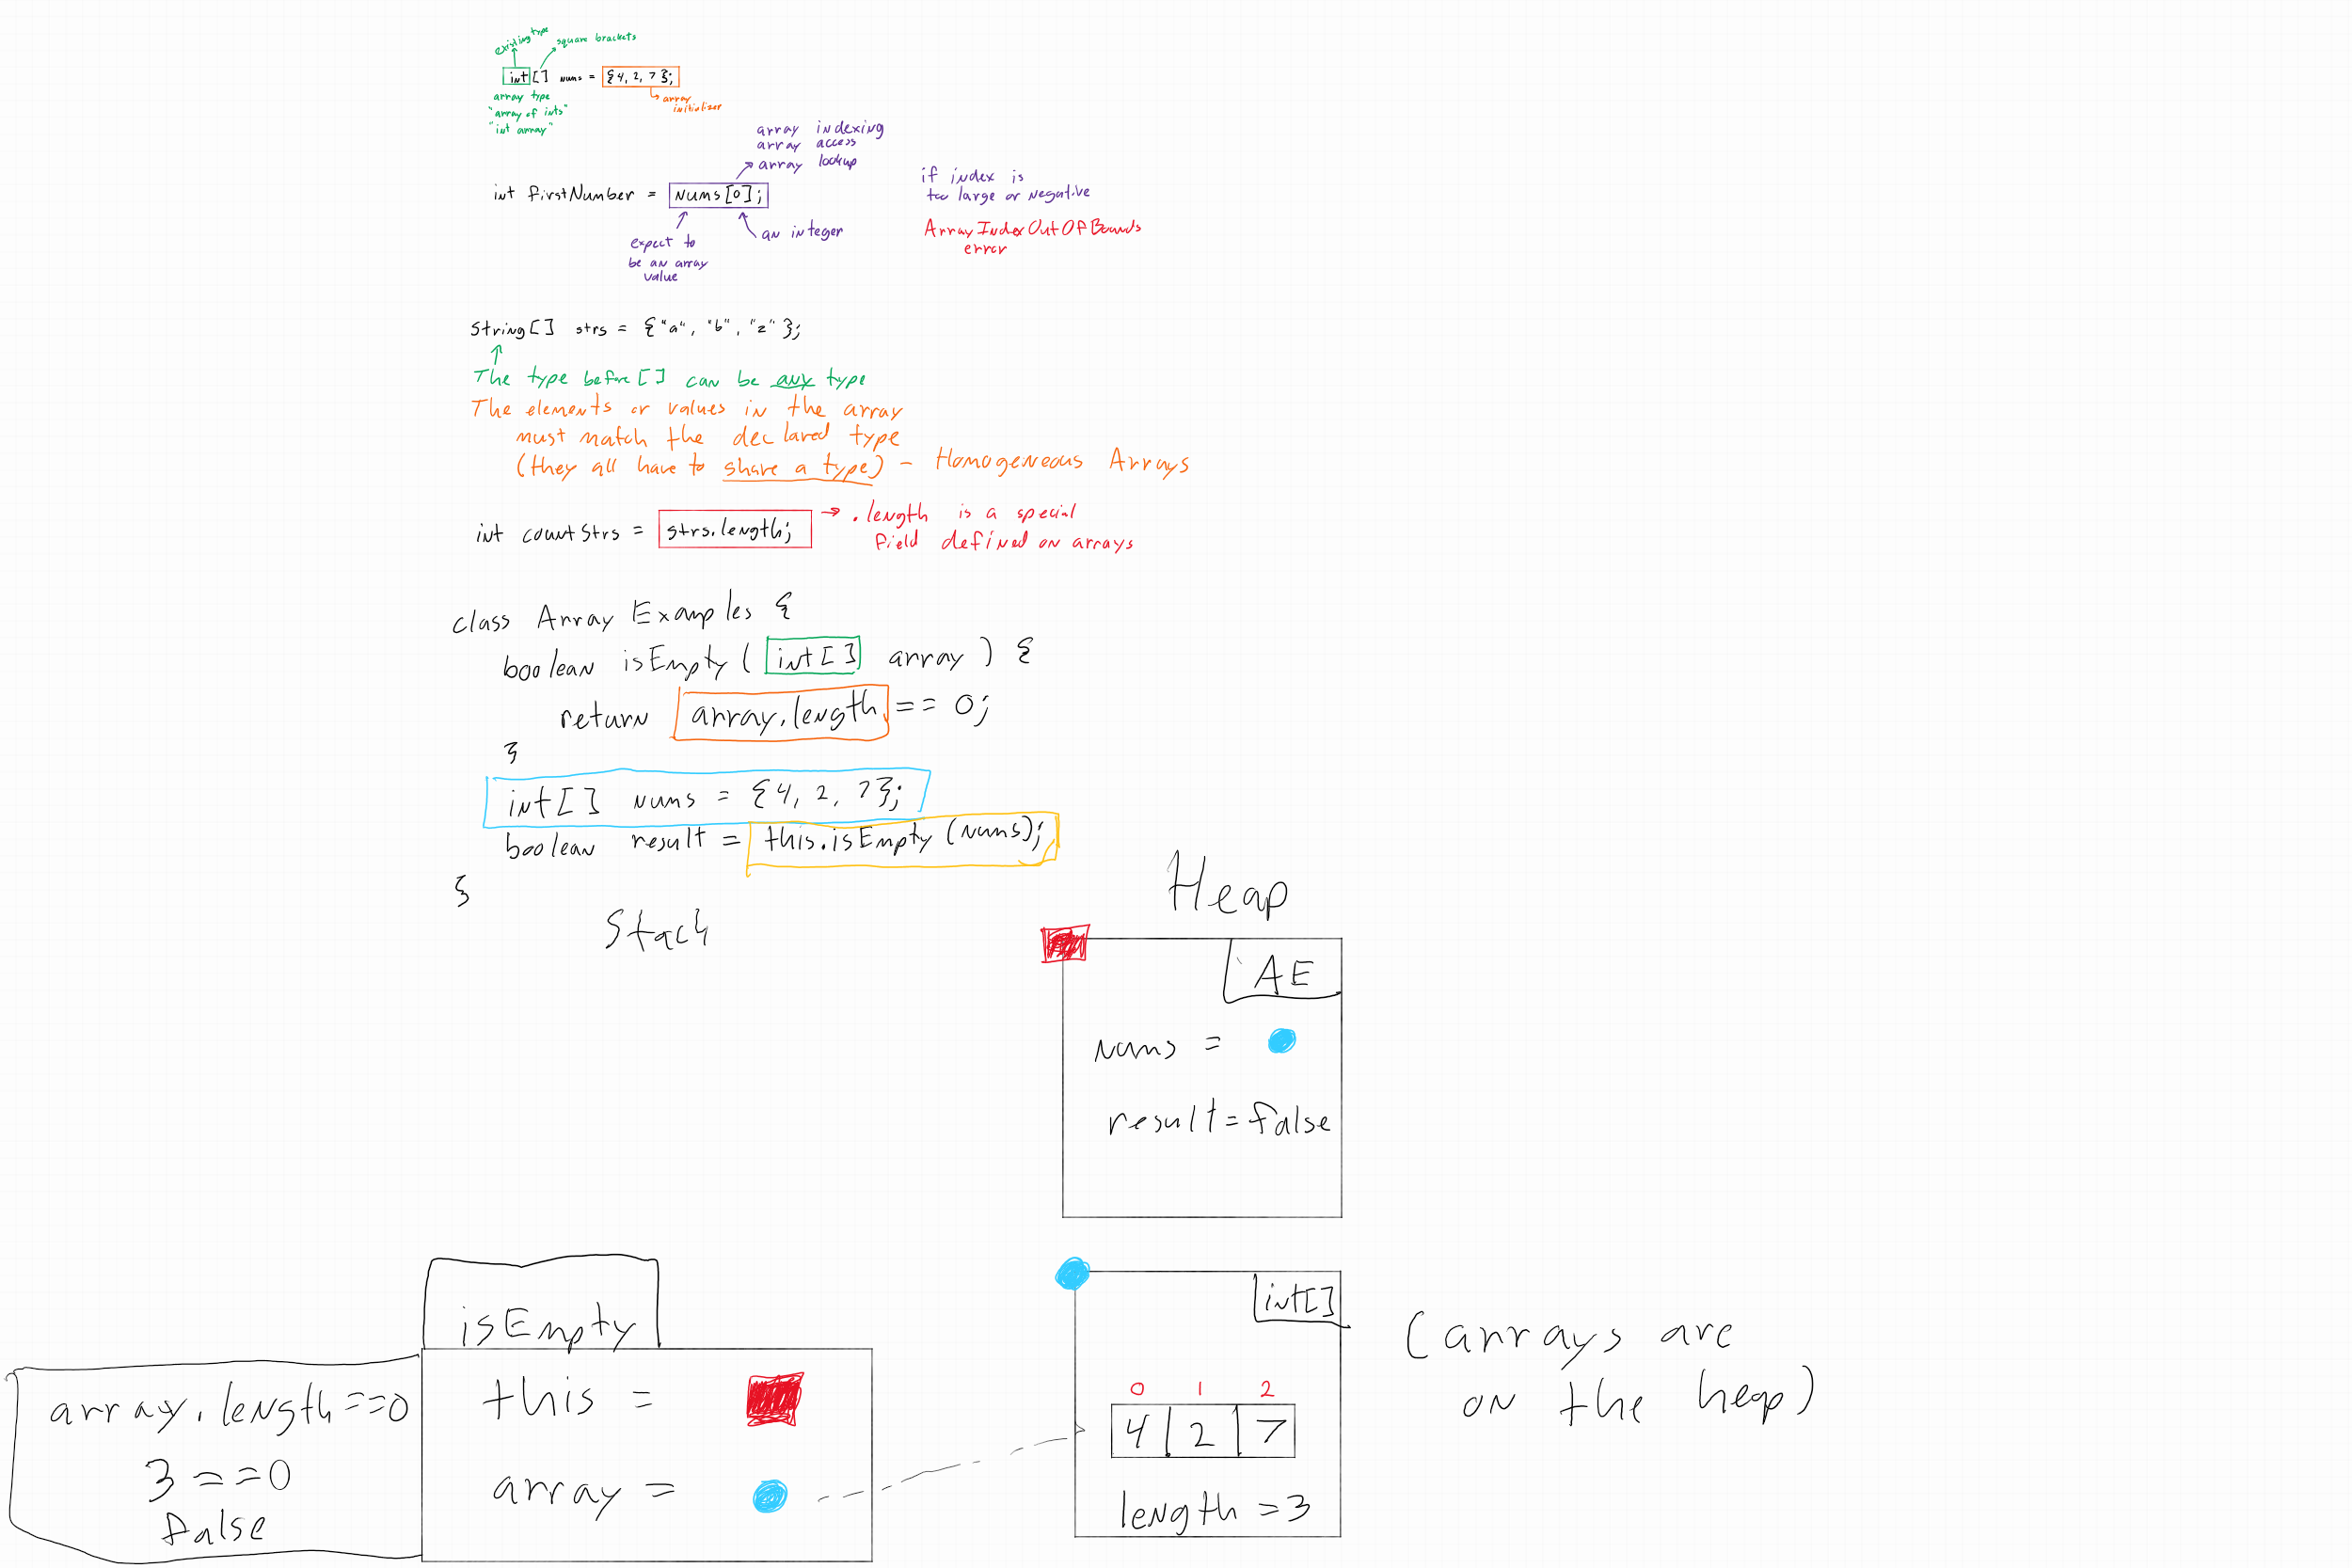 existing type
square brackets
int[] nums = {4, 2, 7};
array type
"array of ints"
"int array"
array
initializer
array indexing
array access
array lookup
int firstNumber = nums[0];
expect to
be an array
value
an integer
if index is
too large or negative
ArrayIndexOutOfBounds
error
String[] strs = {"a", "b", "z"};
The type before [] can be any type
The elements or values in the array
must match the declared type
(they all have to share a type) - Homogeneous Arrays
int countStrs = strs.length;
→ .length is a special
field defined on arrays
class ArrayExamples {
boolean isEmpty(int[] array) {
return array.length == 0;
}
int[] nums = {4, 2, 7};
boolean result = this.isEmpty(nums);
}
Stack
Heap
AE
nums =
result = false
isEmpty
this =
array =
array.length==0
3 == 0
false
int[]
0 1 2
4 2 7
length = 3
(arrays are
on the heap)